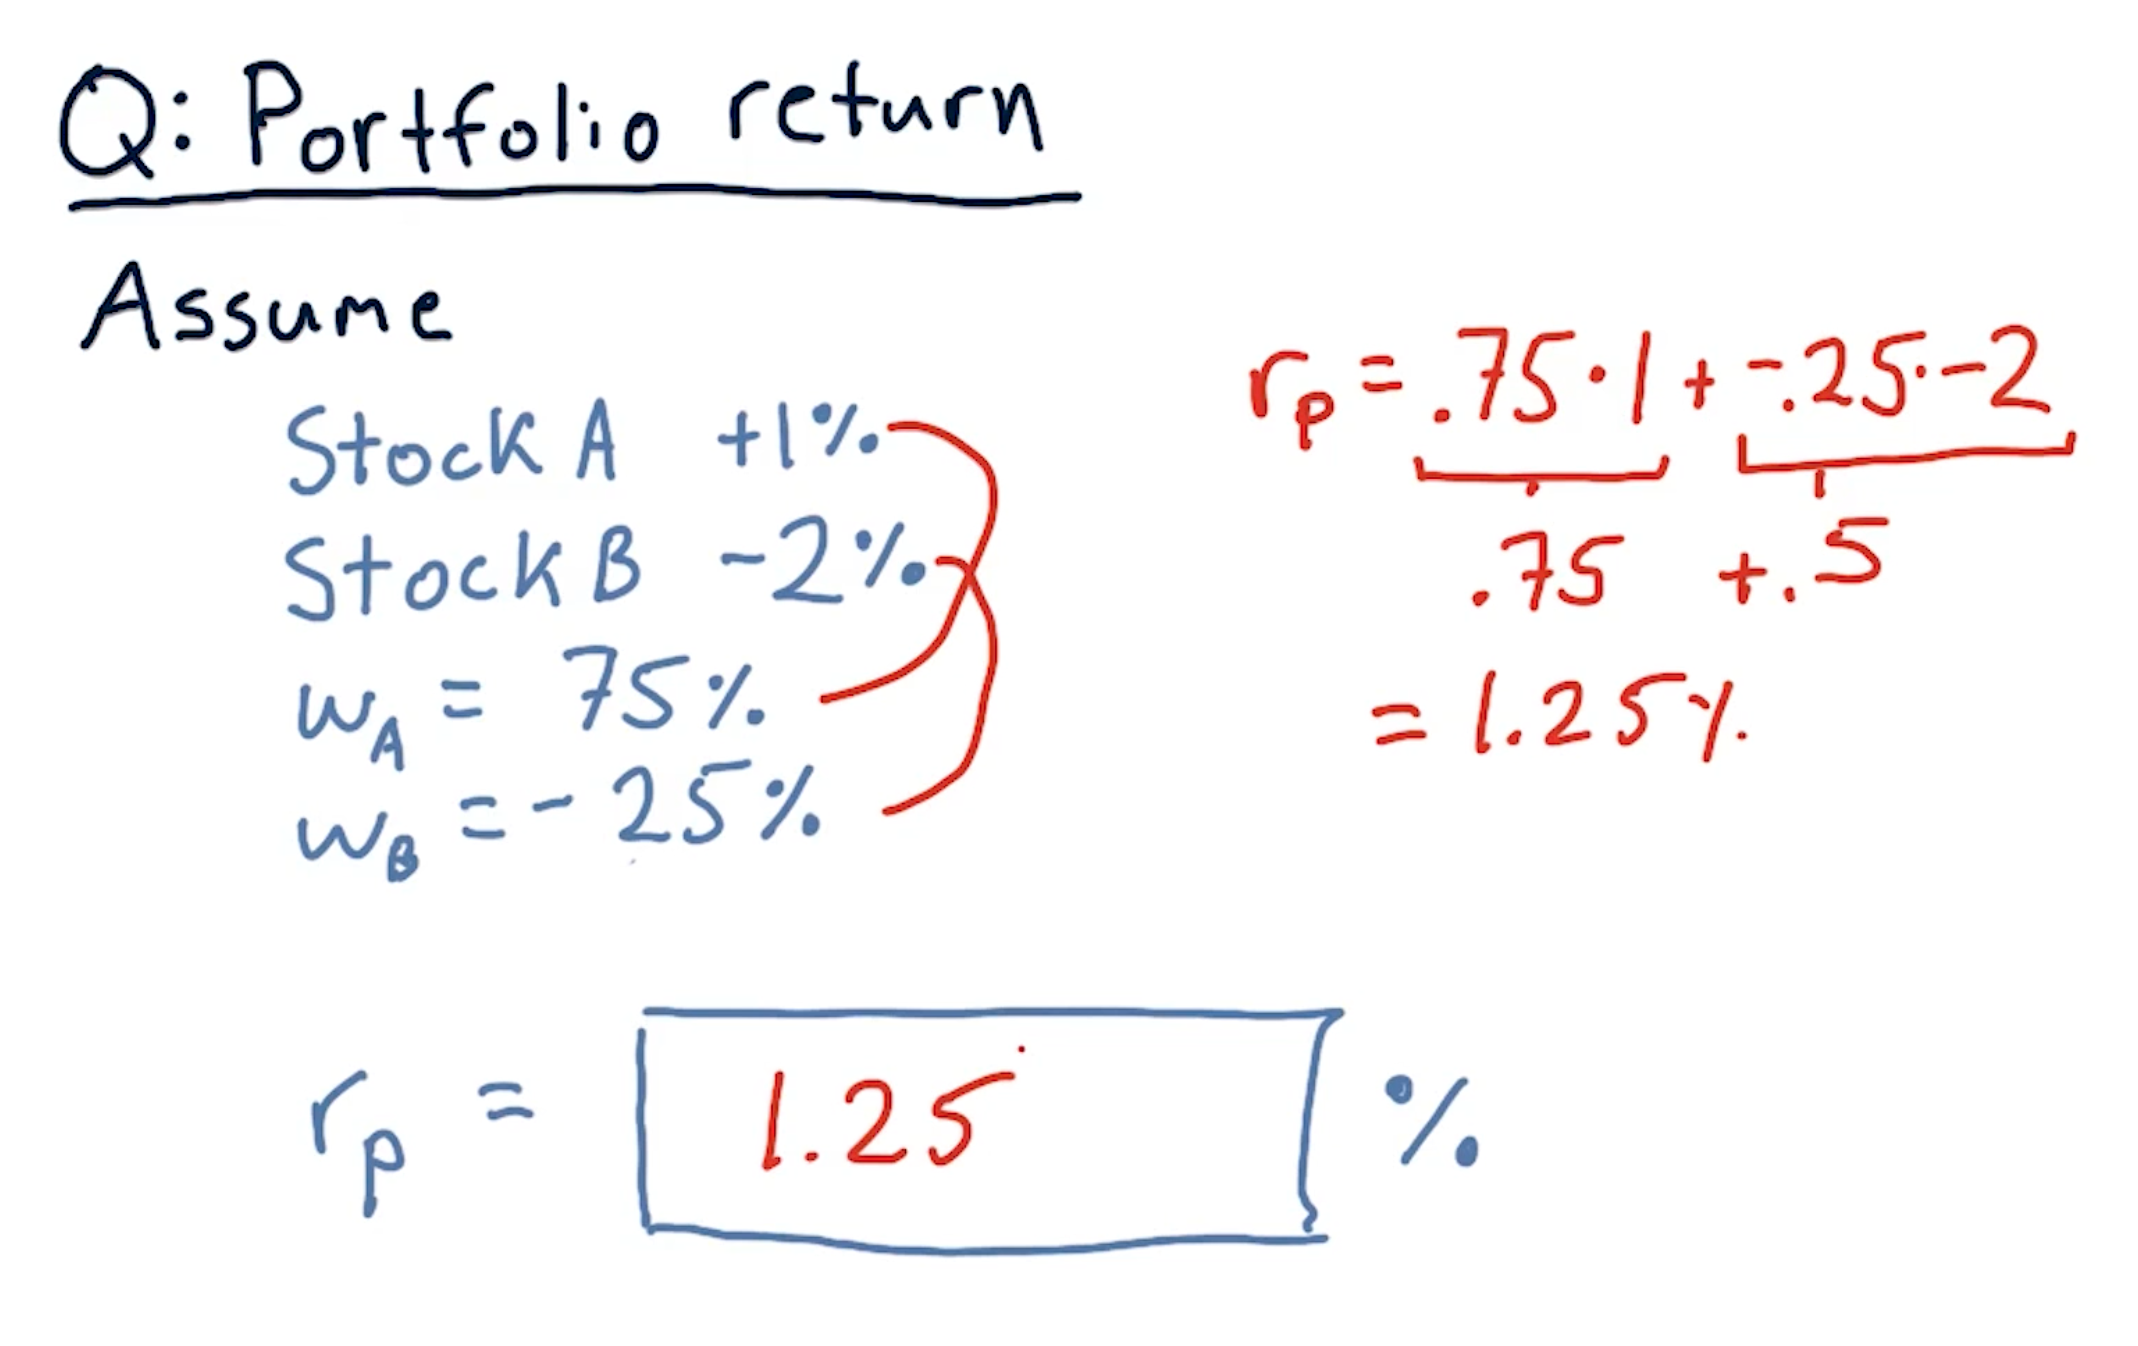 Q: Portfolio return
Assume
Stock A +1%
Stock B -2%
wA = 75%
wB = -25%
rp = .75·1 + -.25·-2
.75 +.5
= 1.25%
rp = 1.25 %